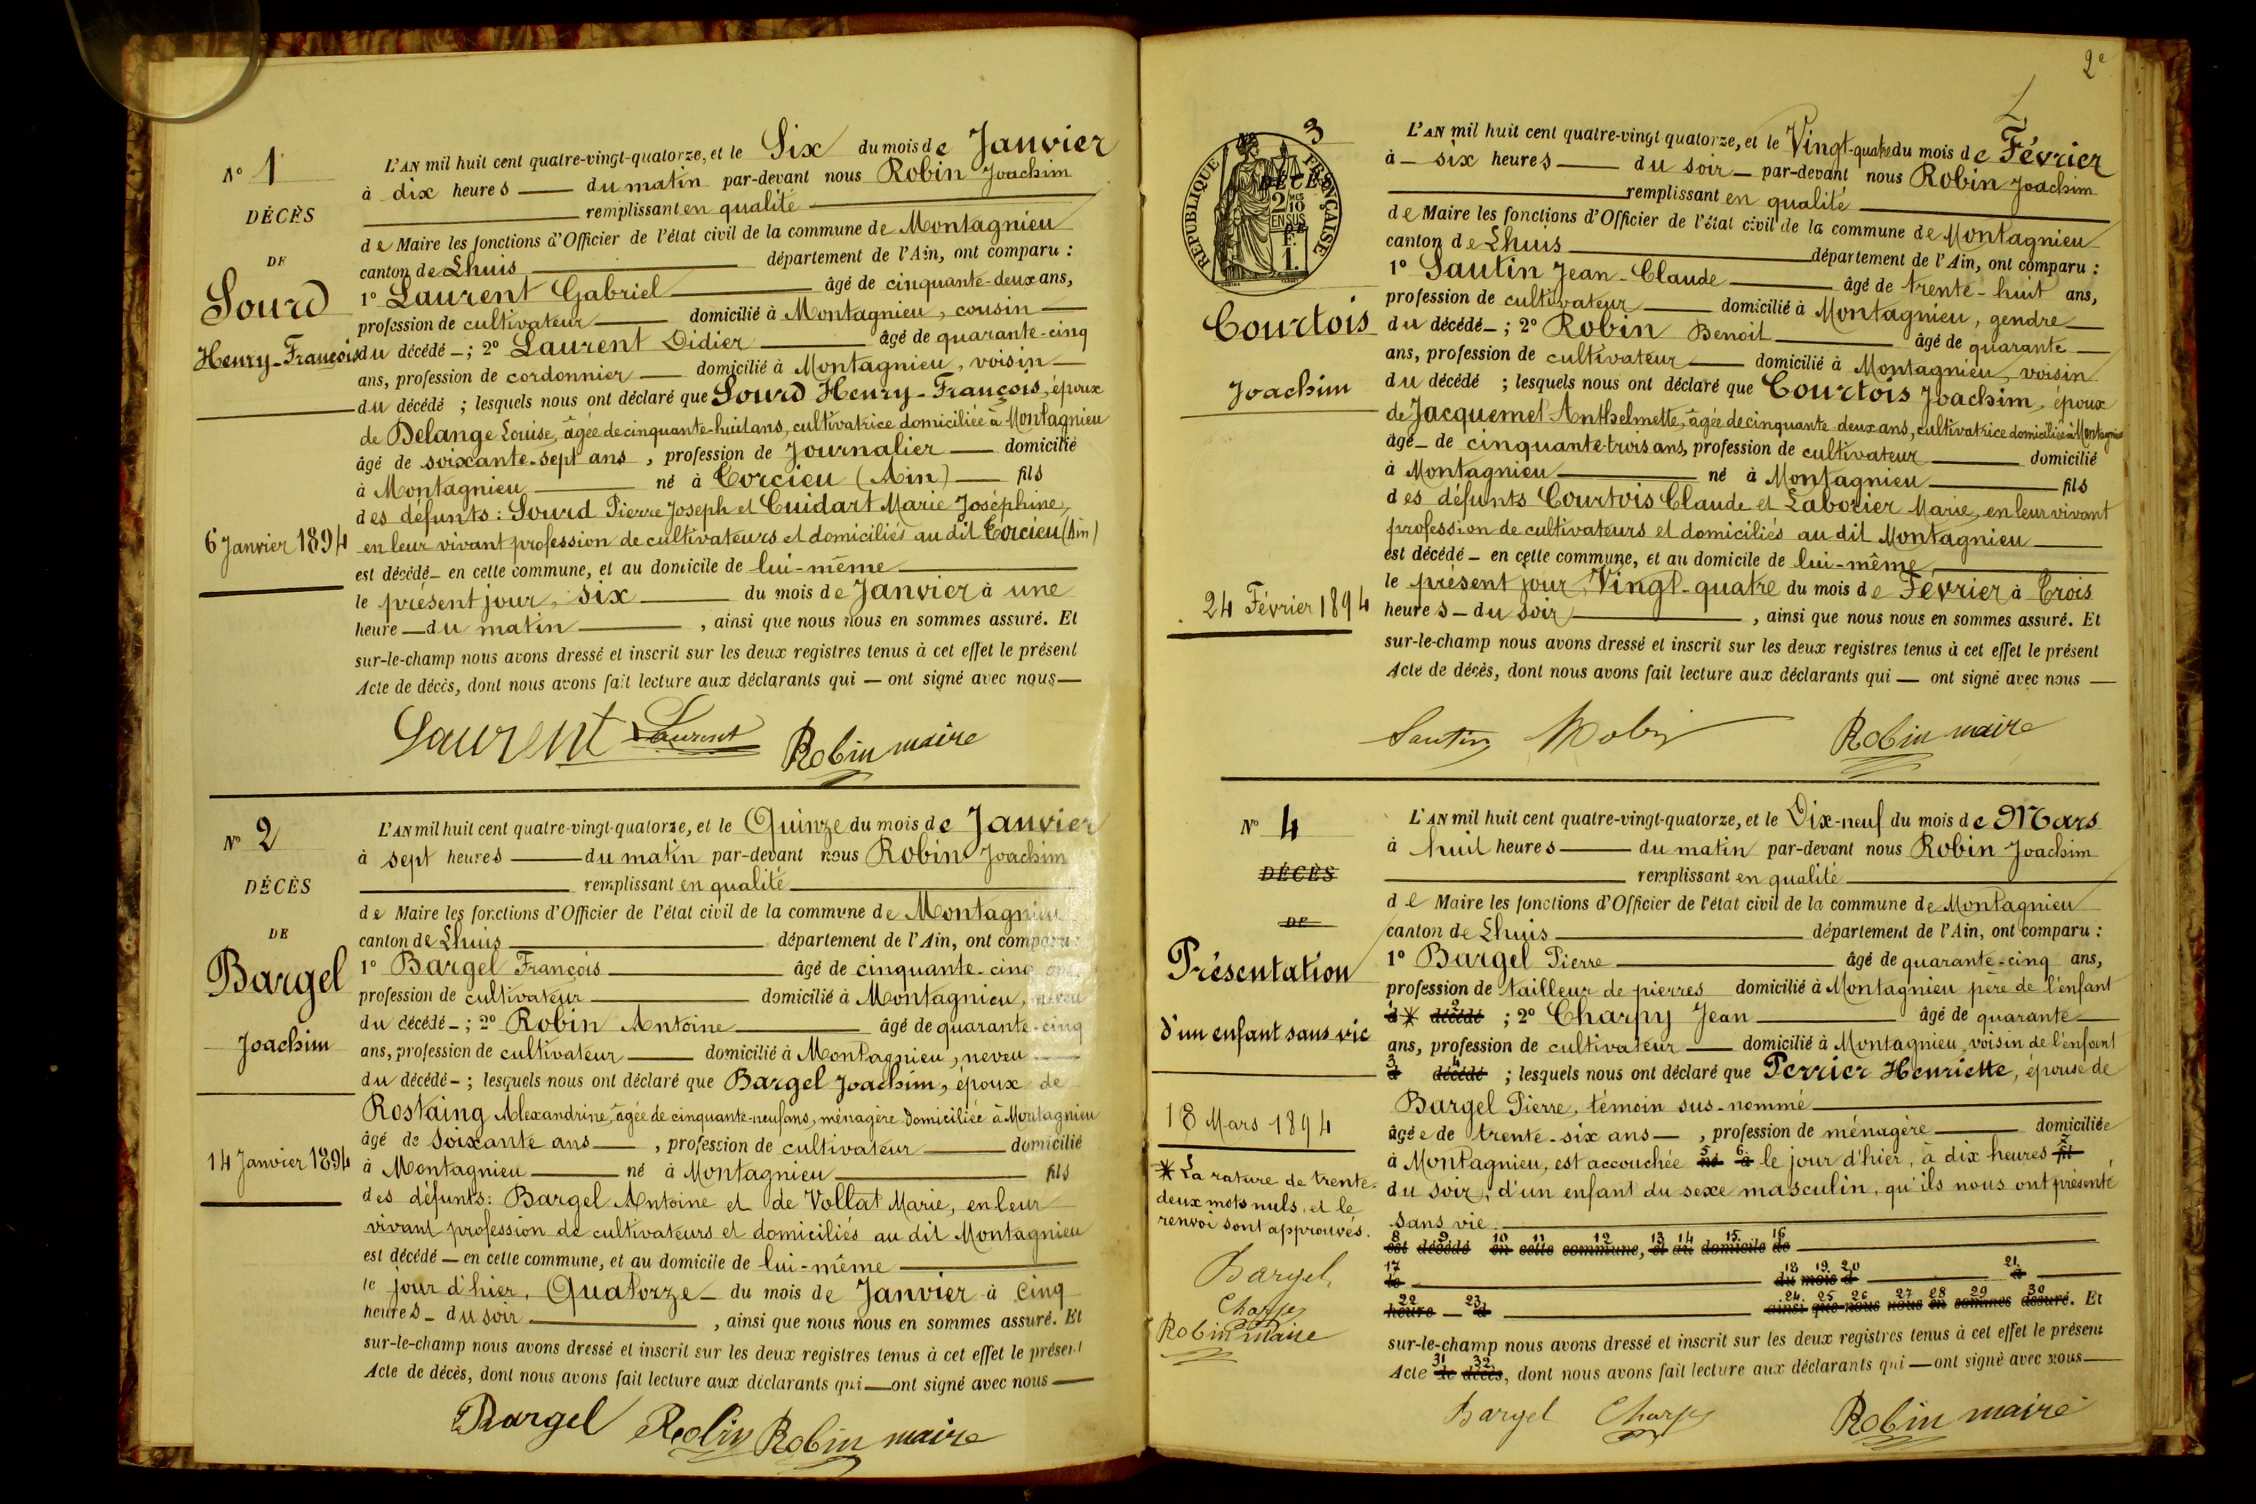 N° 1
DÉCÈS
DE
Sourd
Henry-François
6 Janvier 1894
L'AN mil huit cent quatre-vingt-quatorze, et le Six du mois de Janvier
à dix heures du matin par-devant nous Robin Joachim
remplissant en qualité
de Maire les fonctions d'Officier de l'état civil de la commune de Montagnieu
canton de Lhuis département de l'Ain, ont comparu :
1° Laurent Gabriel âgé de cinquante-deux ans,
profession de cultivateur domicilié à Montagnieu, cousin
du décédé ; 2° Laurent Didier âgé de quarante-cinq
ans, profession de cordonnier domicilié à Montagnieu, voisin
du décédé ; lesquels nous ont déclaré que Sourd Henry-François, époux
de Delange Louise, âgée de cinquante-huit ans, cultivatrice domiciliée à Montagnieu
âgé de soixante-sept ans, profession de Journalier domicilié
à Montagnieu né à Torcieu (Ain) fils
des défunts : Sourd Pierre Joseph et Cuidart Marie Joséphine,
en leur vivant profession de cultivateurs et domiciliés au dit Torcieu (Ain)
est décédé en cette commune, et au domicile de lui-même
le présent jour, six du mois de Janvier à une
heure du matin, ainsi que nous nous en sommes assuré. Et
sur-le-champ nous avons dressé et inscrit sur les deux registres tenus à cet effet le présent
Acte de décès, dont nous avons fait lecture aux déclarants qui ont signé avec nous
Laurent Laurent Robin maire
N° 2
DÉCÈS
DE
Bargel
Joachim
14 Janvier 1894
L'AN mil huit cent quatre-vingt-quatorze, et le Quinze du mois de Janvier
à sept heures du matin par-devant nous Robin Joachim
remplissant en qualité
de Maire les fonctions d'Officier de l'état civil de la commune de Montagnieu
canton de Lhuis département de l'Ain, ont comparu :
1° Bargel François âgé de cinquante-cinq ans,
profession de cultivateur domicilié à Montagnieu, neveu
du décédé ; 2° Robin Antoine âgé de quarante-cinq
ans, profession de cultivateur domicilié à Montagnieu, neveu
du décédé ; lesquels nous ont déclaré que Bargel Joachim, époux de
Rostaing Alexandrine, âgée de cinquante-neuf ans, ménagère domiciliée à Montagnieu
âgé de soixante ans, profession de cultivateur domicilié
à Montagnieu né à Montagnieu fils
des défunts : Bargel Antoine et de Vollat Marie, en leur
vivant profession de cultivateurs et domiciliés au dit Montagnieu
est décédé en cette commune, et au domicile de lui-même
le jour d'hier, Quatorze du mois de Janvier à cinq
heures du soir, ainsi que nous nous en sommes assuré. Et
sur-le-champ nous avons dressé et inscrit sur les deux registres tenus à cet effet le présent
Acte de décès, dont nous avons fait lecture aux déclarants qui ont signé avec nous
Bargel Robin Robin maire
2e
3
RÉPUBLIQUE FRANÇAISE
DÉCÈS
2/10 EN SUS
1 F.
Courtois
Joachim
24 Février 1894
L'AN mil huit cent quatre-vingt quatorze, et le Vingt-quatre du mois de Février
à six heures du soir par-devant nous Robin Joachim
remplissant en qualité
de Maire les fonctions d'Officier de l'état civil de la commune de Montagnieu
canton de Lhuis département de l'Ain, ont comparu :
1° Sautin Jean-Claude âgé de trente-huit ans,
profession de cultivateur domicilié à Montagnieu, gendre
du décédé ; 2° Robin Benoit âgé de quarante
ans, profession de cultivateur domicilié à Montagnieu, voisin
du décédé ; lesquels nous ont déclaré que Courtois Joachim, époux
de Jacquemet Anthelmette, âgée de cinquante deux ans, cultivatrice domiciliée à Montagnieu
âgé de cinquante-trois ans, profession de cultivateur domicilié
à Montagnieu né à Montagnieu fils
des défunts Courtois Claude et Laborier Marie, en leur vivant
profession de cultivateurs et domiciliés au dit Montagnieu
est décédé en cette commune, et au domicile de lui-même
le présent jour, Vingt-quatre du mois de Février à Trois
heures du soir, ainsi que nous nous en sommes assuré. Et
sur-le-champ nous avons dressé et inscrit sur les deux registres tenus à cet effet le présent
Acte de décès, dont nous avons fait lecture aux déclarants qui ont signé avec nous
Sautin Robin Robin maire
N° 4
DÉCÈS
DE
Présentation
d'un enfant sans vie
18 Mars 1894
* La rature de trente-
deux mots nuls, et le
renvoi sont approuvés.
Bargel
Charpy
Robin maire
L'AN mil huit cent quatre-vingt-quatorze, et le Dix-neuf du mois de Mars
à huit heures du matin par-devant nous Robin Joachim
remplissant en qualité
de Maire les fonctions d'Officier de l'état civil de la commune de Montagnieu
canton de Lhuis département de l'Ain, ont comparu :
1° Bargel Pierre âgé de quarante-cinq ans,
profession de tailleur de pierres domicilié à Montagnieu père de l'enfant
1 d * 2 décédé ; 2° Charpy Jean âgé de quarante
ans, profession de cultivateur domicilié à Montagnieu, voisin de l'enfant
3 d 4 décédé ; lesquels nous ont déclaré que Perrier Henriette, épouse de
Bargel Pierre, témoin sus-nommé
âgée de trente-six ans, profession de ménagère domiciliée
à Montagnieu, est accouchée 5 né 6 à le jour d'hier, à dix heures 7 fil
du soir, d'un enfant du sexe masculin, qu'ils nous ont présenté
sans vie.
8 est 9 décédé 10 en 11 cette 12 commune, 13 et 14 au 15 domicile 16 de
17 le 18 du 19 mois 20 d 21 à
22 heure 23 d 24 ainsi 25 que 26 nous 27 nous 28 en 29 sommes 30 assuré. Et
sur-le-champ nous avons dressé et inscrit sur les deux registres tenus à cet effet le présent
Acte 31 de 32 décès, dont nous avons fait lecture aux déclarants qui ont signé avec nous
Bargel Charpy Robin maire